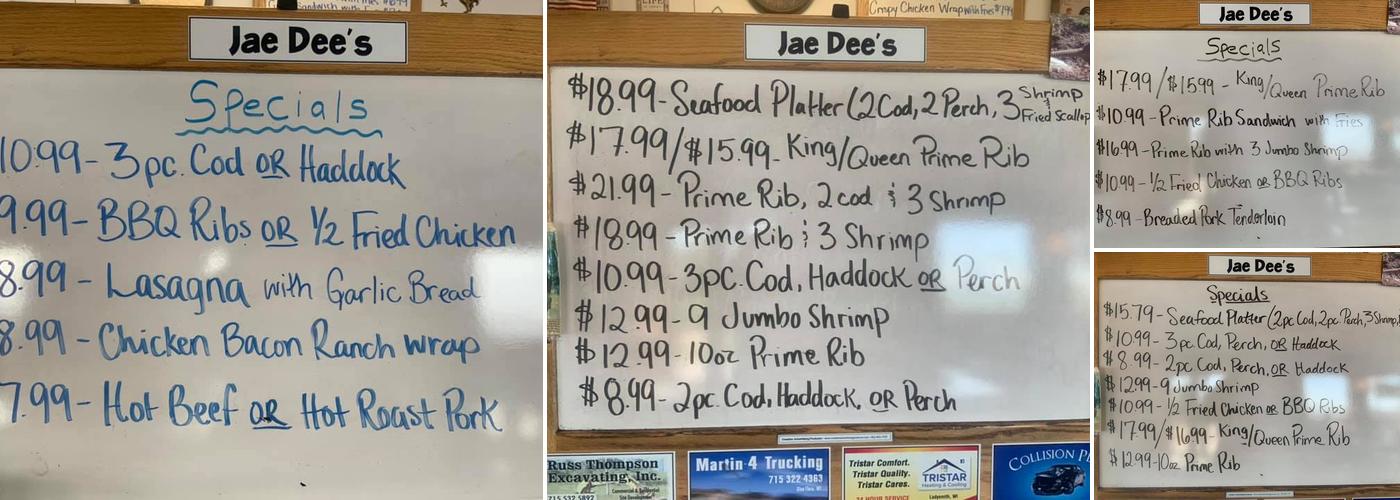 Jae Dee's
Specials
10.99-3pc. Cod OR Haddock
9.99-BBQ Ribs OR 1/2 Fried Chicken
8.99- Lasagna with Garlic Bread
8.99- Chicken Bacon Ranch wrap
7.99- Hot Beef OR Hot Roast Pork
Crispy Chicken Wrap with Fries
Jae Dee's
$18.99- Seafood Platter (2Cod, 2 Perch, 3 Shrimp
Fried Scallop
$17.99/$15.99- King/Queen Prime Rib
$21.99- Prime Rib, 2 cod & 3 Shrimp
$18.99- Prime Rib & 3 Shrimp
$10.99-3pc. Cod, Haddock OR Perch
$12.99-9 Jumbo Shrimp
$12.99-10oz Prime Rib
$8.99-2pc. Cod, Haddock, OR Perch
Russ Thompson
Excavating, Inc.
Commercial & Residential
Site Development
715 532 5892
Martin-4 Trucking
715 322 4363
Tristar Comfort.
Tristar Quality.
Tristar Cares.
24 HOUR SERVICE
TRISTAR
Heating & Cooling
Ladysmith, WI
COLLISION
Jae Dee's
Specials
$17.99/$15.99- King/Queen Prime Rib
$10.99- Prime Rib Sandwich with Fries
$16.99-Prime Rib with 3 Jumbo Shrimp
$10.99- 1/2 Fried Chicken OR BBQ Ribs
$8.99-Breaded Pork Tenderloin
Jae Dee's
Specials
$15.79- Seafood Platter (2pc Cod, 2pc. Perch, 3 Shrimp,
$10.99- 3pc Cod, Perch, OR Haddock
$8.99- 2pc Cod, Perch, OR Haddock
$12.99-9 Jumbo Shrimp
$10.99- 1/2 Fried Chicken OR BBQ Ribs
$17.99/$16.99- King/Queen Prime Rib
$12.99-10oz Prime Rib